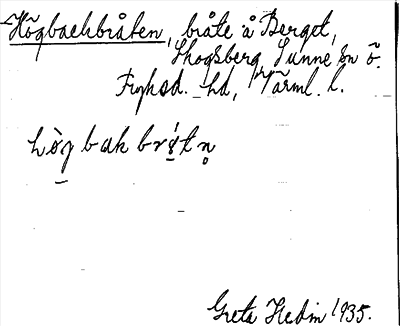 Högbackbråten, bråte å Berget,
Skogsberg, Sunne sn ö.
Fryksd. hd, Värml. l.
hög bak brǻt n̥
Greta Hedin 1935.